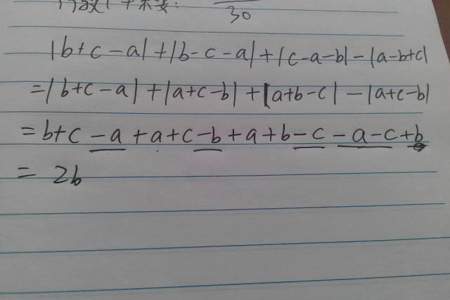 30
|b+c-a|+|b-c-a|+|c-a-b|-|a-b+c|
=|b+c-a|+|a+c-b|+|a+b-c|-|a+c-b|
=b+c-a+a+c-b+a+b-c-a-c+b
=2b